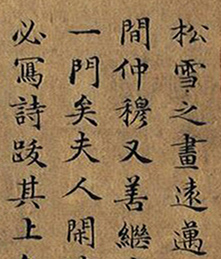 松雪之畫遠邁
間仲穆又善繼
一門矣夫人閑
必寫詩跋其上